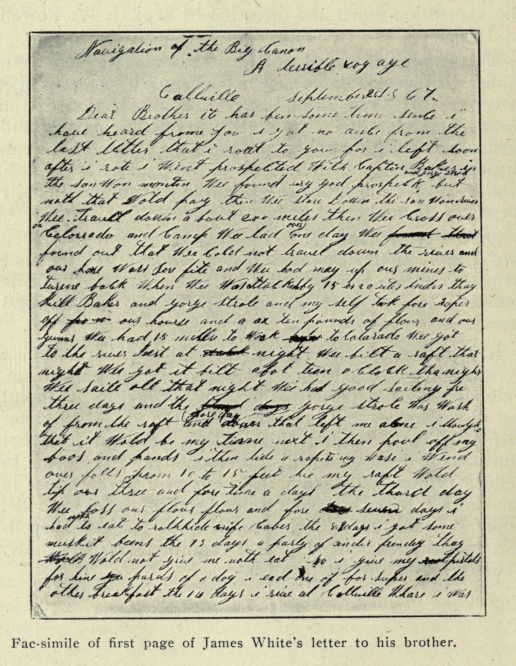 Navigation of the Big Canon
A terrible voy age
Callville September 26
Dear Brother it has ben some time senc i
have heard frome you i got no anc from the
last letter that i roat to you for i left soon
after i rote i Went prospected With Captin Baker
the son Won montin Wee found vry god prospck but
noth that Wold pay then Wee store Down the son Won river
Wee travel down a bout 200 miles then Wee Cross over
on Colorado and Camp Wee lad over one day Wee
found out that Wee Cold not travel down the river and
our hors Wars sore fite and Wee had may up our mines to
turene back When Wee Was attacked by 15 or 20 utes indes they
kill Baker and gorge strole and my self tok fore ropes
off our hourse and a ax ten pounds of flour and our
gunns Wee had 15 milles to Wok to Colarado Wee got
to the river Jest at night Wee bilt a raft that
night Wee got it bilt abot tion o Clock tha night
Wee saile all that night Wee had good sailing fro
three days and the fore day gorge strole Was Wash
of from the raft and down that left me alone i thought
that it Wold be my time next i then poul off my
boos and pands i then tide a rope to my wase i Wend
over falls from 10 to 15 feet hie my raft Wold
tip over three and fore time a day the thurd day
Wee loss our flour flour and fore seven days i
had noth to eat to rothhide nife Caber the 8 days i got some
muskit beens the 13 days a party of indes frendey thay
Wold not give me noth eat so i give my pistols
for hine pards of a dog i ead one of for super and the
other breakfast the 14 days i rive at Callville Whare i Was
Fac-simile of first page of James White's letter to his brother.